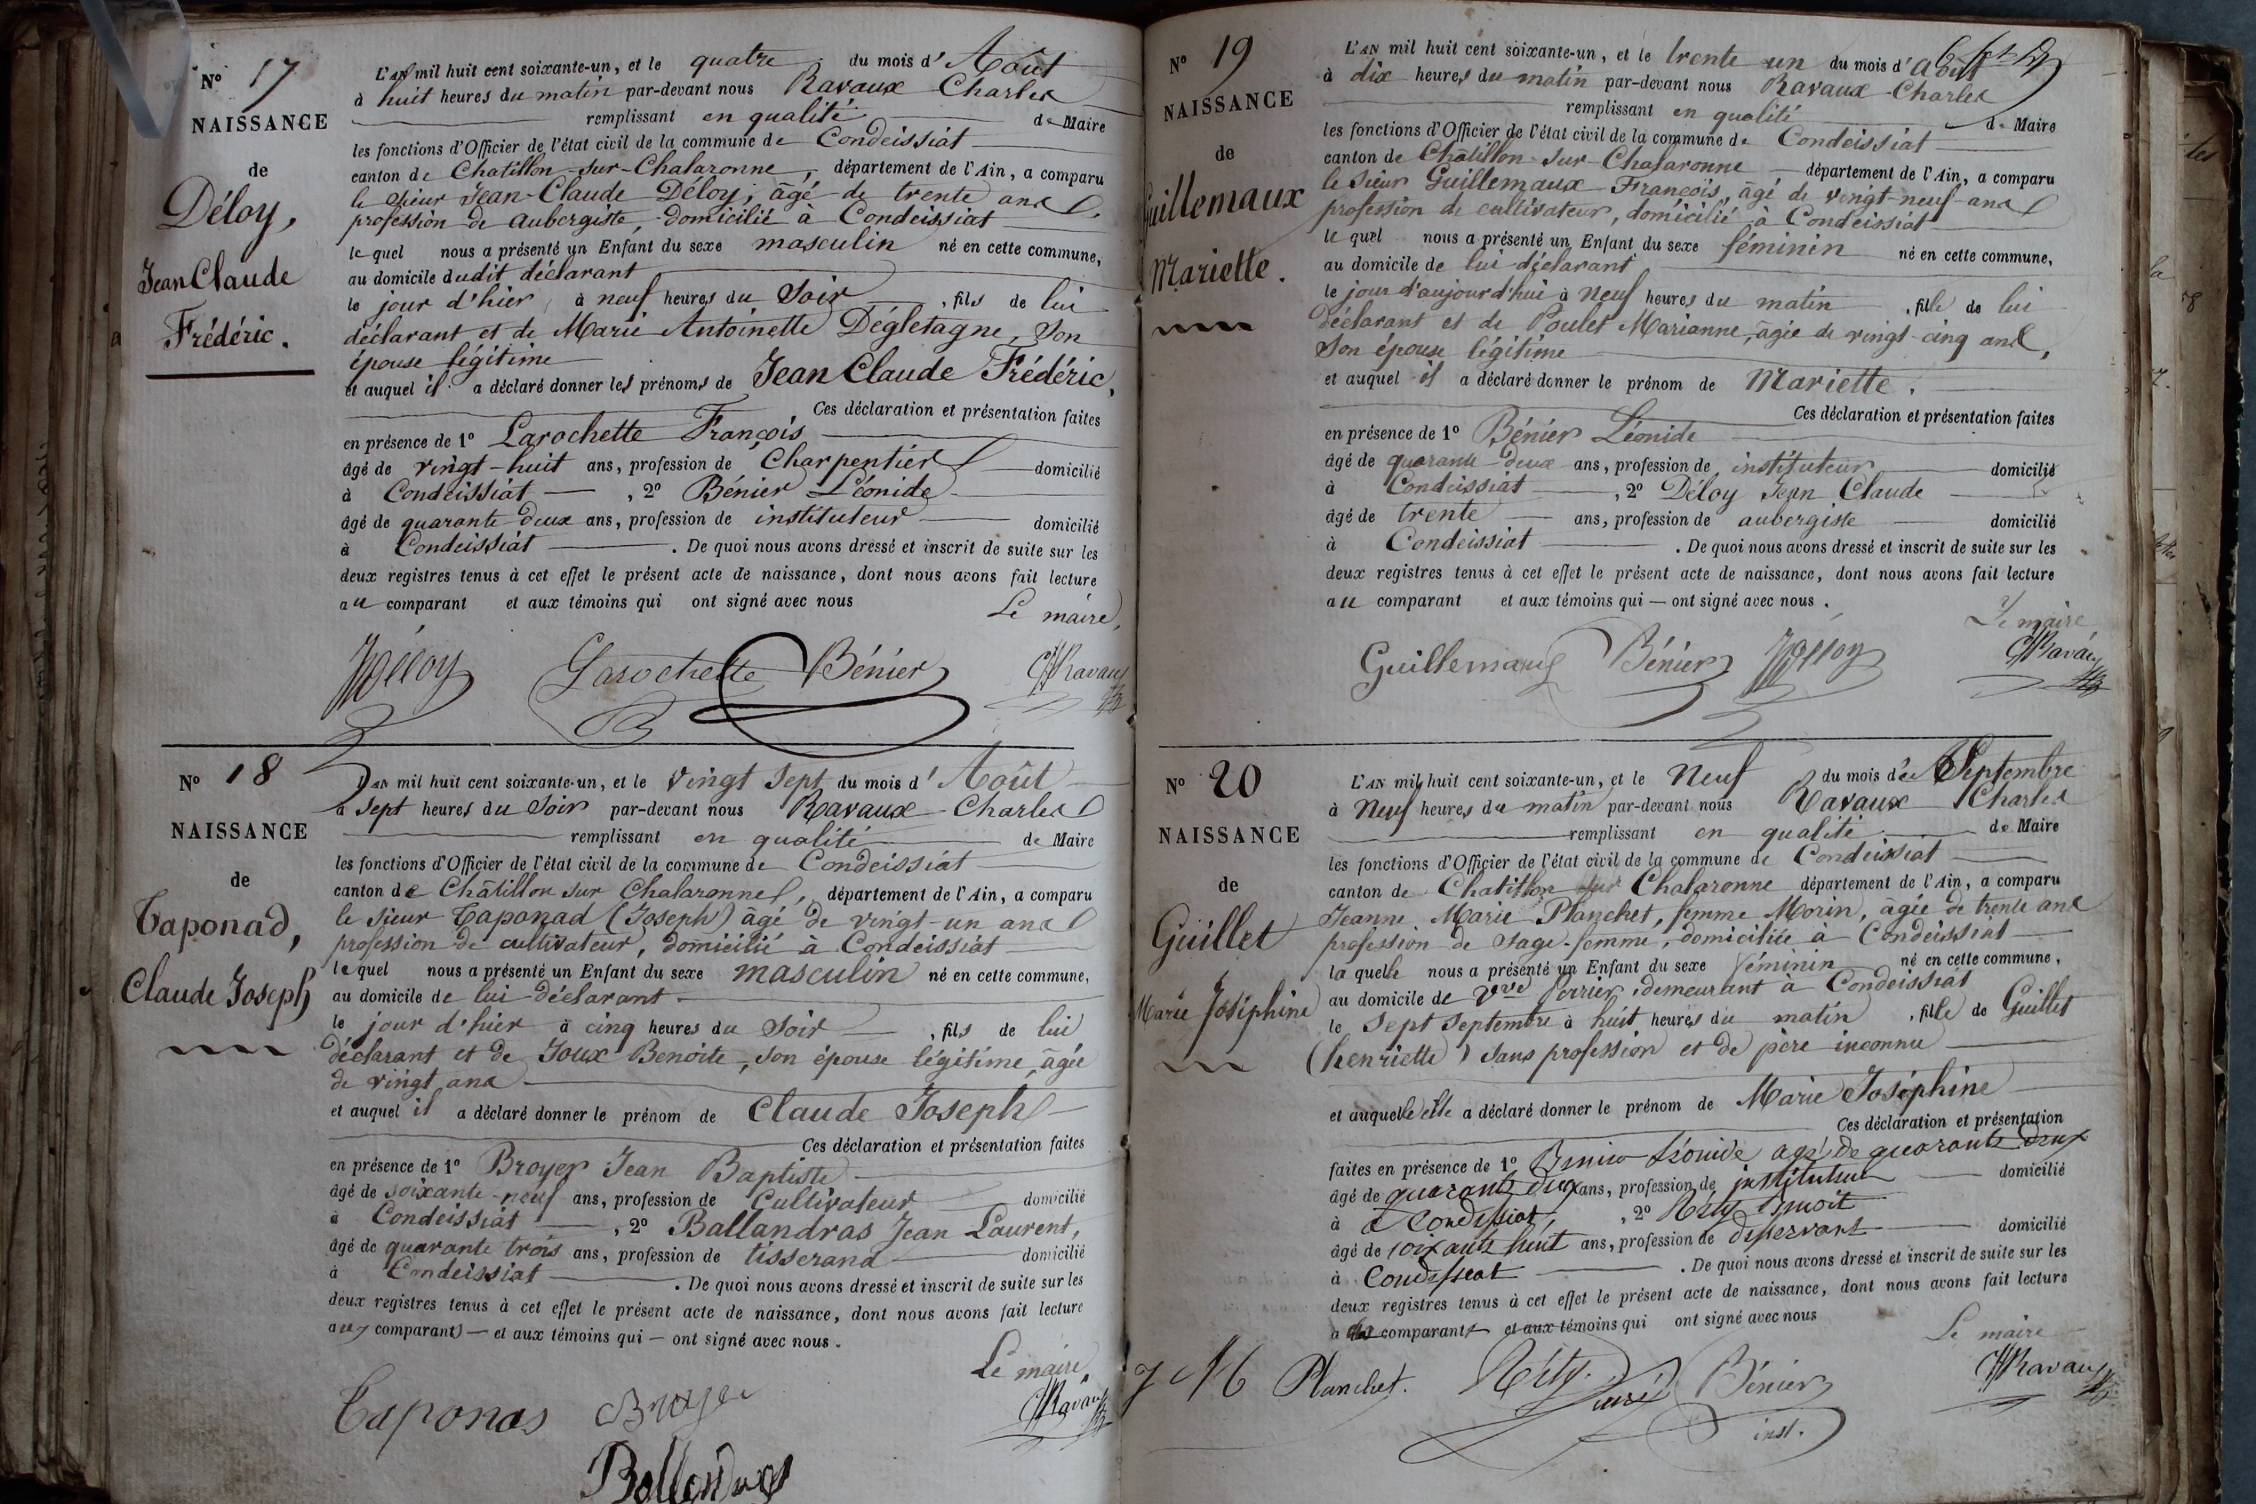 N° 17
NAISSANCE
de
Déloy,
Jean Claude
Frédéric.
L'AN mil huit cent soixante-un, et le quatre du mois d'Août
à huit heures du matin par-devant nous Ravaux Charles
remplissant en qualité de Maire
les fonctions d'Officier de l'état civil de la commune de Condeissiat
canton de Chatillon-sur-Chalaronne, département de l'Ain, a comparu
le sieur Jean-Claude Déloy, âgé de trente ans
profession de aubergiste, domicilié à Condeissiat
lequel nous a présenté un Enfant du sexe masculin né en cette commune,
au domicile dudit déclarant
le jour d'hier, à neuf heures du soir, fils de lui
déclarant et de Marie Antoinette Dégletagne, son
épouse légitime
et auquel il a déclaré donner les prénoms de Jean Claude Frédéric,
Ces déclaration et présentation faites
en présence de 1° Larochette François
âgé de vingt-huit ans, profession de Charpentier domicilié
à Condeissiat, 2° Bénier Léonide
âgé de quarante-deux ans, profession de instituteur domicilié
à Condeissiat. De quoi nous avons dressé et inscrit de suite sur les
deux registres tenus à cet effet le présent acte de naissance, dont nous avons fait lecture
au comparant et aux témoins qui ont signé avec nous
Le maire,
Déloy Larochette Bénier Ravaux
N° 18
NAISSANCE
de
Taponad,
Claude Joseph
L'AN mil huit cent soixante-un, et le vingt sept du mois d'Août
à sept heures du soir par-devant nous Ravaux Charles
remplissant en qualité de Maire
les fonctions d'Officier de l'état civil de la commune de Condeissiat
canton de Châtillon sur Chalaronne, département de l'Ain, a comparu
le sieur Taponad (Joseph) âgé de vingt-un ans
profession de cultivateur, domicilié à Condeissiat
lequel nous a présenté un Enfant du sexe masculin né en cette commune,
au domicile de lui déclarant
le jour d'hier à cinq heures du soir, fils de lui
déclarant et de Joux Benoite, son épouse légitime, âgée
de vingt ans
et auquel il a déclaré donner le prénom de Claude Joseph
Ces déclaration et présentation faites
en présence de 1° Broyer Jean Baptiste
âgé de soixante-neuf ans, profession de cultivateur domicilié
à Condeissiat, 2° Ballandras Jean Laurent,
âgé de quarante trois ans, profession de tisserand domicilié
à Condeissiat. De quoi nous avons dressé et inscrit de suite sur les
deux registres tenus à cet effet le présent acte de naissance, dont nous avons fait lecture
aux comparants — et aux témoins qui — ont signé avec nous.
Le maire
Taponas Broyer Ravaux
Ballandras
N° 19
NAISSANCE
de
Guillemaux
Mariette.
L'AN mil huit cent soixante-un, et le trente un du mois d'août
à dix heures du matin par-devant nous Ravaux Charles
remplissant en qualité de Maire
les fonctions d'Officier de l'état civil de la commune de Condeissiat
canton de Châtillon-sur-Chalaronne département de l'Ain, a comparu
le sieur Guillemaux François, âgé de vingt-neuf ans
profession de cultivateur, domicilié à Condeissiat
lequel nous a présenté un Enfant du sexe féminin né en cette commune,
au domicile de lui déclarant
le jour d'aujourd'hui à neuf heures du matin, fille de lui
déclarant et de Poulet Marianne, âgée de vingt-cinq ans,
son épouse légitime
et auquel il a déclaré donner le prénom de Mariette.
Ces déclaration et présentation faites
en présence de 1° Bénier Léonide
âgé de quarante-deux ans, profession de instituteur domicilié
à Condeissiat, 2° Déloy Jean Claude
âgé de trente ans, profession de aubergiste domicilié
à Condeissiat. De quoi nous avons dressé et inscrit de suite sur les
deux registres tenus à cet effet le présent acte de naissance, dont nous avons fait lecture
au comparant et aux témoins qui — ont signé avec nous.
Le maire
Guillemaux Bénier Déloy Ravaux
N° 20
NAISSANCE
de
Guillet
Marie Joséphine
L'AN mil huit cent soixante-un, et le neuf du mois de Septembre
à neuf heures du matin par-devant nous Ravaux Charles
remplissant en qualité de Maire
les fonctions d'Officier de l'état civil de la commune de Condeissiat
canton de Chatillon sur Chalaronne département de l'Ain, a comparu
Jeanne Marie Planchet, femme Morin, âgée de trente ans
profession de sage-femme, domiciliée à Condeissiat
laquelle nous a présenté un Enfant du sexe féminin né en cette commune,
au domicile de Vve Perrier, demeurant à Condeissiat
le sept septembre à huit heures du matin, fille de Guillet
(henriette) sans profession et de père inconnu
et auquel elle a déclaré donner le prénom de Marie Joséphine
Ces déclaration et présentation
faites en présence de 1° Bénier Léonide agé de quarante deux
âgé de quarante deux ans, profession de instituteur domicilié
à à Condeissiat, 2° Réty Benoit
âgé de soixante huit ans, profession de desservant domicilié
à Condeissiat. De quoi nous avons dressé et inscrit de suite sur les
deux registres tenus à cet effet le présent acte de naissance, dont nous avons fait lecture
a comparant et aux témoins qui ont signé avec nous
Le maire
J M Planchet. Réty. curé Bénier Ravaux
inst.